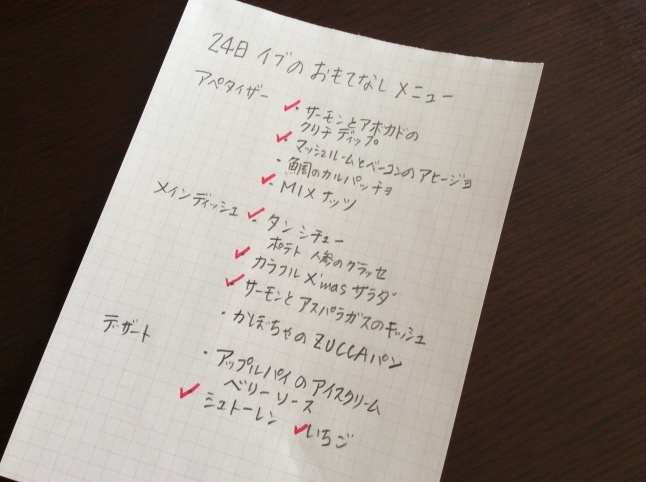 24日 イブのおもてなしメニュー
アペタイザー
・サーモンとアボカドの
クリチディップ
・マッシュルームとベーコンのアヒージョ
・鯛のカルパッチョ
・MIXナッツ
メインディッシュ
・タンシチュー
ポテト 人参のグラッセ
カラフルX'masサラダ
・サーモンとアスパラガスのキッシュ
・かぼちゃのZUCCAパン
デザート
・アップルパイのアイスクリーム
ベリーソース
ミュトーレン いちご